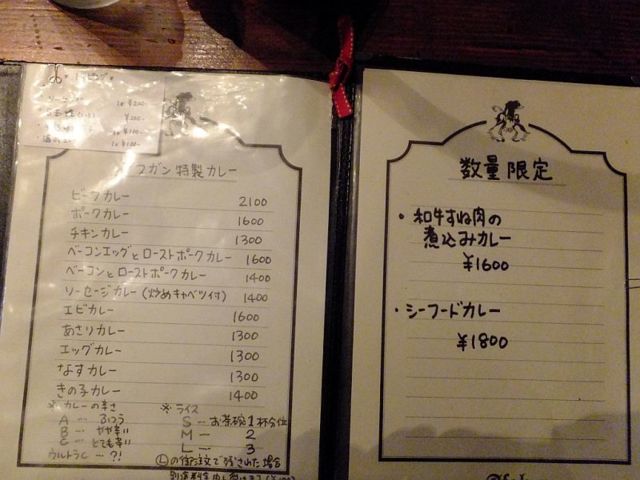 トッピング
ソーセージ
1ヶ ¥200-
¥200-
1ヶ ¥100-
フガン 特製カレー
ビーフカレー 2100
ポークカレー 1600
チキンカレー 1300
ベーコンエッグとローストポークカレー 1600
ベーコンとローストポークカレー 1400
ソーセージカレー(炒めキャベツ付) 1400
エビカレー 1600
あさりカレー 1300
エッグカレー 1300
なすカレー 1300
きの子カレー 1400
※カレーの辛さ
A … ふつう
B … やや辛い
C … とても辛い
ウルトラC … ?!
※ ライス
S … お茶碗1杯分位
M … 2
L … 3
Ⓛの御注文で残された場合
数量限定
・和牛すね肉の
煮込みカレー
¥1600
・シーフードカレー
¥1800